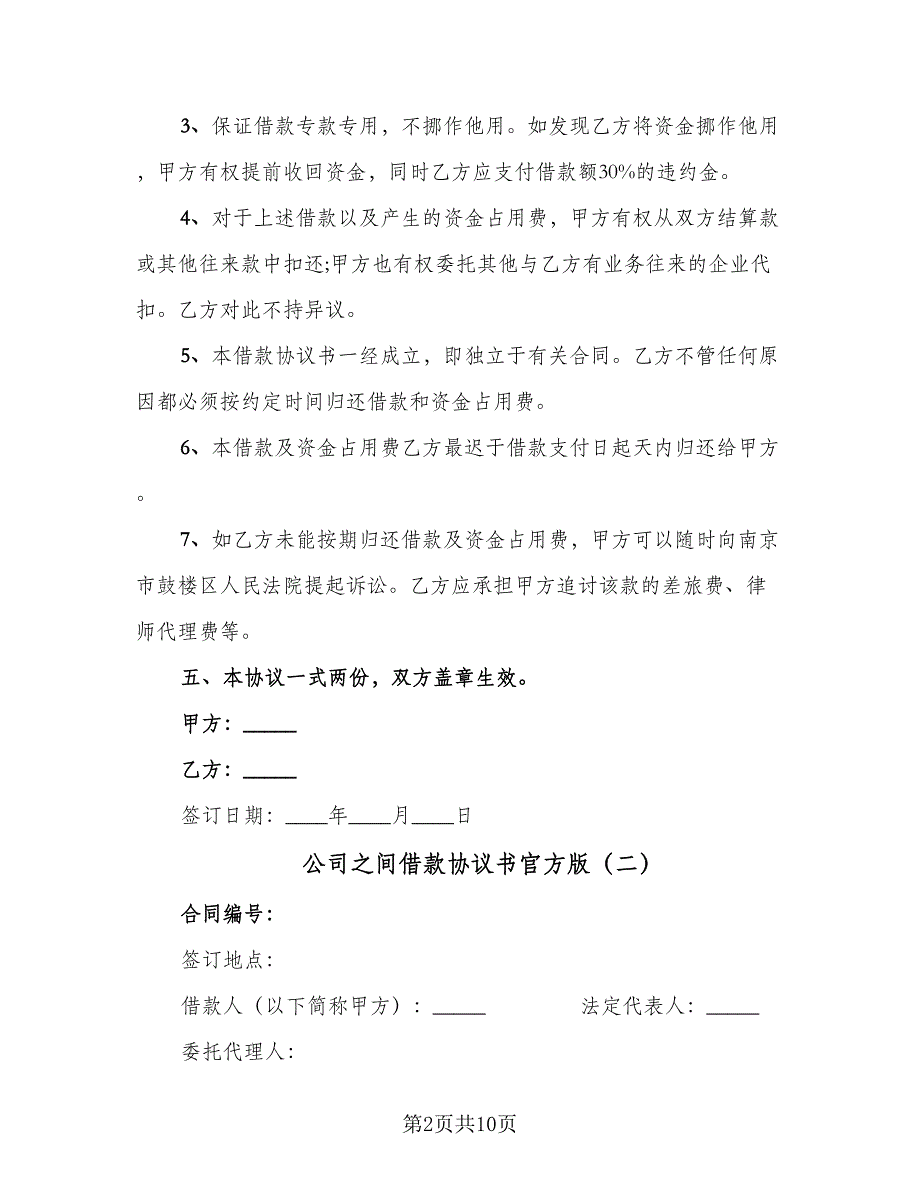 3、保证借款专款专用，不挪作他用。如发现乙方将资金挪作他用
，甲方有权提前收回资金，同时乙方应支付借款额30%的违约金。
4、对于上述借款以及产生的资金占用费，甲方有权从双方结算款
或其他往来款中扣还;甲方也有权委托其他与乙方有业务往来的企业代
扣。乙方对此不持异议。
5、本借款协议书一经成立，即独立于有关合同。乙方不管任何原
因都必须按约定时间归还借款和资金占用费。
6、本借款及资金占用费乙方最迟于借款支付日起天内归还给甲方
。
7、如乙方未能按期归还借款及资金占用费，甲方可以随时向南京
市鼓楼区人民法院提起诉讼。乙方应承担甲方追讨该款的差旅费、律
师代理费等。
五、本协议一式两份，双方盖章生效。
甲方：_____
乙方：_____
签订日期：____年____月____日
公司之间借款协议书官方版（二）
合同编号：
签订地点：
借款人（以下简称甲方）：_____ 法定代表人：_____
委托代理人：
第2页共10页